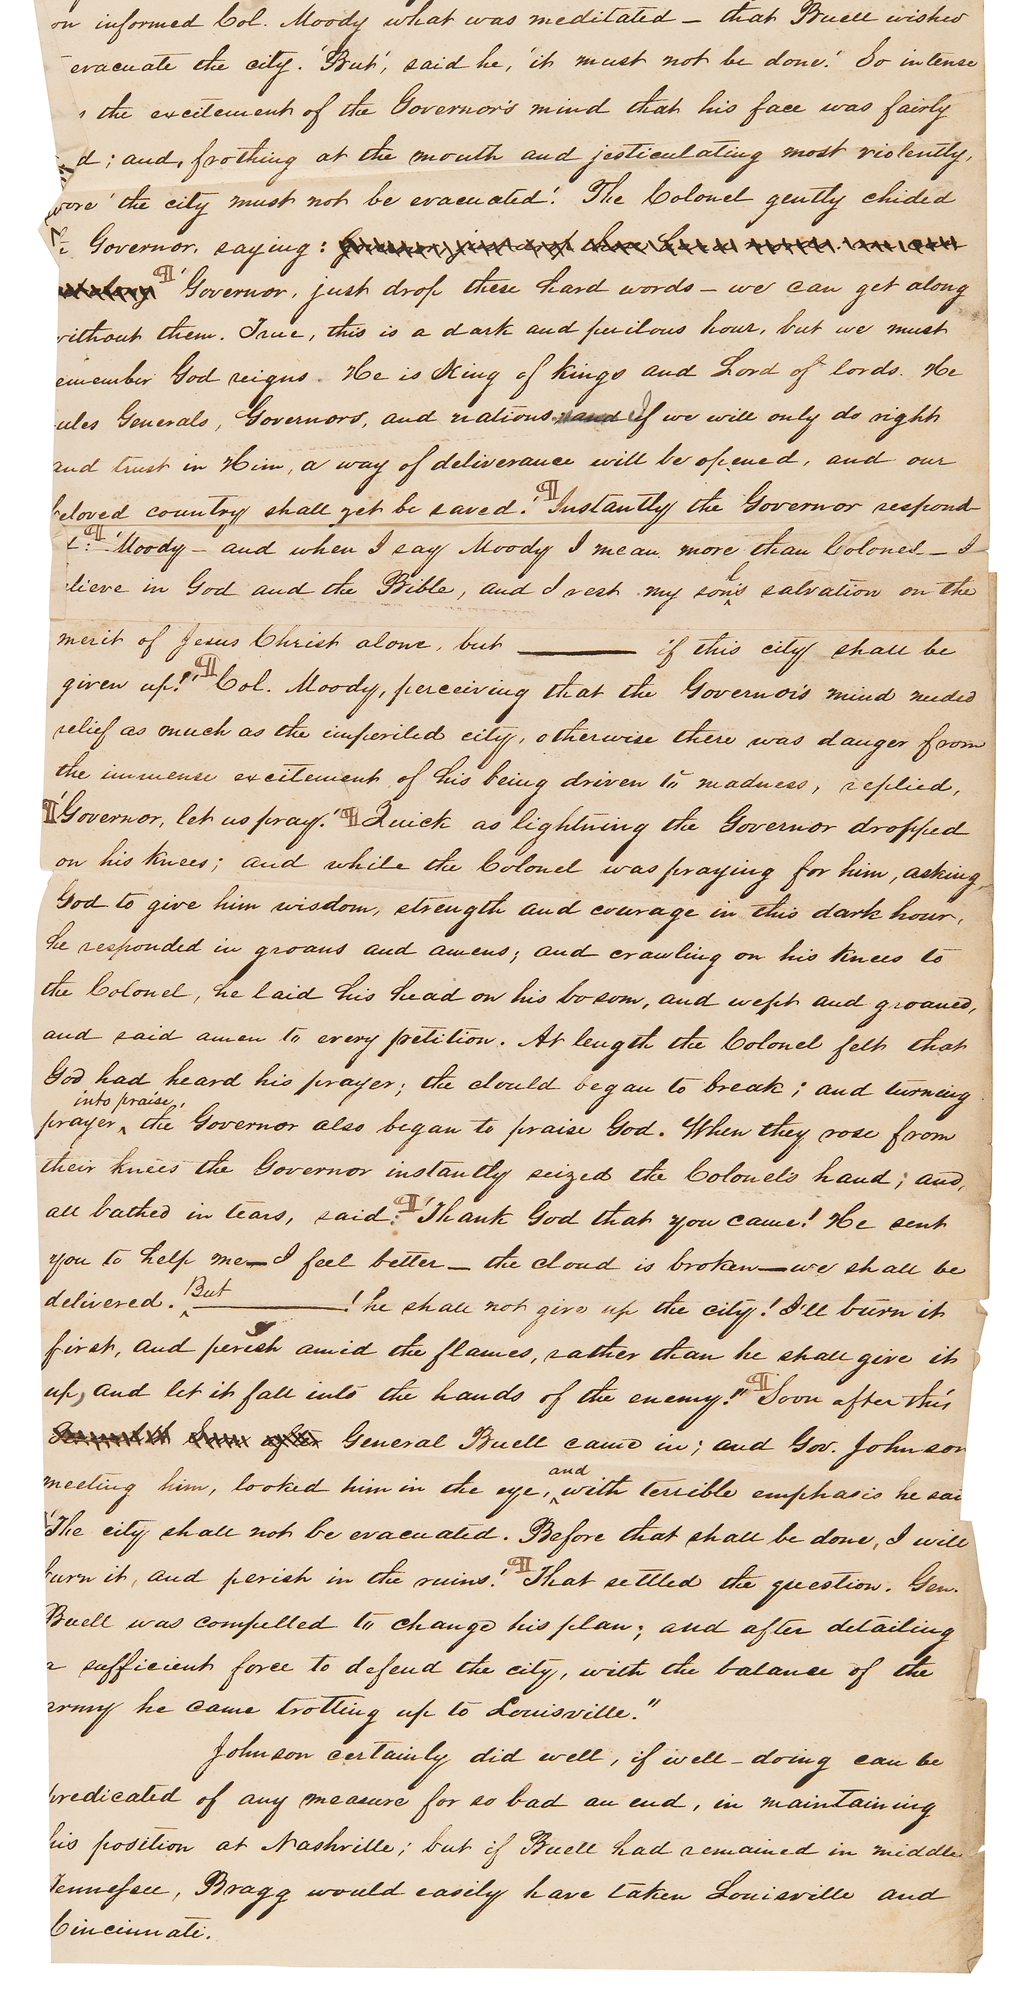 on informed Col. Moody what was meditated — that Buell wished
evacuate the city. 'But', said he, 'it must not be done.' So intense
the excitement of the Governor's mind that his face was fairly
d; and, frothing at the mouth and jesticulating most violently,
wore 'the city must not be evacuated!' The Colonel gently chided
Governor, saying:
¶ 'Governor, just drop these hard words — we can get along
without them. True, this is a dark and perilous hour, but we must
emember God reigns. He is King of kings and Lord of lords. He
ules Generals, Governors, and nations; and If we will only do right
and trust in Him, a way of deliverance will be opened, and our
beloved country shall yet be saved.' ¶ Instantly the Governor respond-
: ¶ 'Moody — and when I say Moody I mean more than Colonel — I
lieve in God and the Bible, and I rest my soul's salvation on the
merit of Jesus Christ alone, but ——— if this city shall be
given up!' ¶ Col. Moody, perceiving that the Governor's mind needed
relief as much as the imperiled city, otherwise there was danger from
the immense excitement of his being driven to madness, replied,
¶ 'Governor, let us pray.' ¶ Quick as lightning the Governor dropped
on his knees; and while the Colonel was praying for him, asking
God to give him wisdom, strength and courage in this dark hour,
he responded in groans and amens; and crawling on his knees to
the Colonel, he laid his head on his bosom, and wept and groaned,
and said amen to every petition. At length the Colonel felt that
God had heard his prayer; the clould began to break; and turning
into praise,
prayer ‸ the Governor also began to praise God. When they rose from
their knees the Governor instantly seized the Colonel's hand; and,
all bathed in tears, said: ¶ 'Thank God that you came! He sent
you to help me — I feel better — the cloud is broken — we shall be
delivered. ‸ But ———! he shall not give up the city! I'll burn it
first, and perish amid the flames, rather than he shall give it
up, and let it fall into the hands of the enemy!" ¶ Soon after this
General Buell came in; and Gov. Johnson
and
meeting him, looked him in the eye, ‸ with terrible emphasis he sai
'The city shall not be evacuated. Before that shall be done, I will
burn it, and perish in the ruins.' ¶ That settled the question. Gen.
Buell was compelled to change his plan; and after detailing
a sufficient force to defend the city, with the balance of the
army he came trotting up to Louisville."
Johnson certainly did well, if well-doing can be
predicated of any measure for so bad an end, in maintaining
his position at Nashville; but if Buell had remained in middle
Tennessee, Bragg would easily have taken Louisville and
Cincinnati.